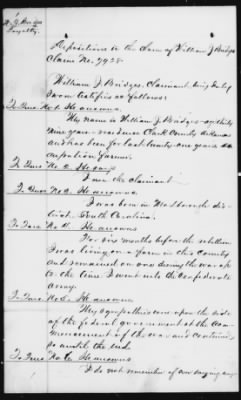 Depositions in the claim of William J. Bridges
Claim No. 7928.
William J. Bridges, Claimant, being duly
sworn testifies as follows:
To Ques No 1. He answers.
My name is William J. Bridges - age thirty
nine years - residence Clark County Arkansas
and has been for last twenty-one years - oc
cupation farmer.
To Ques No. 2. He says
I am the claimant -
To Ques No 3. He answers.
I was born in Marlborough dis-
trict - South Carolina.
To Ques No. 4. He answers
For six months before the rebellion
I was living on a farm in this County
and remained on one during the war up
to the time I went into the Confederate
Army.
To Ques No 5. He answers
My sympathies were upon the side
of the federal government at the com-
mencement of the war and continued
so until the end.
To Ques No 6. He answers
I do not remember of ever saying any